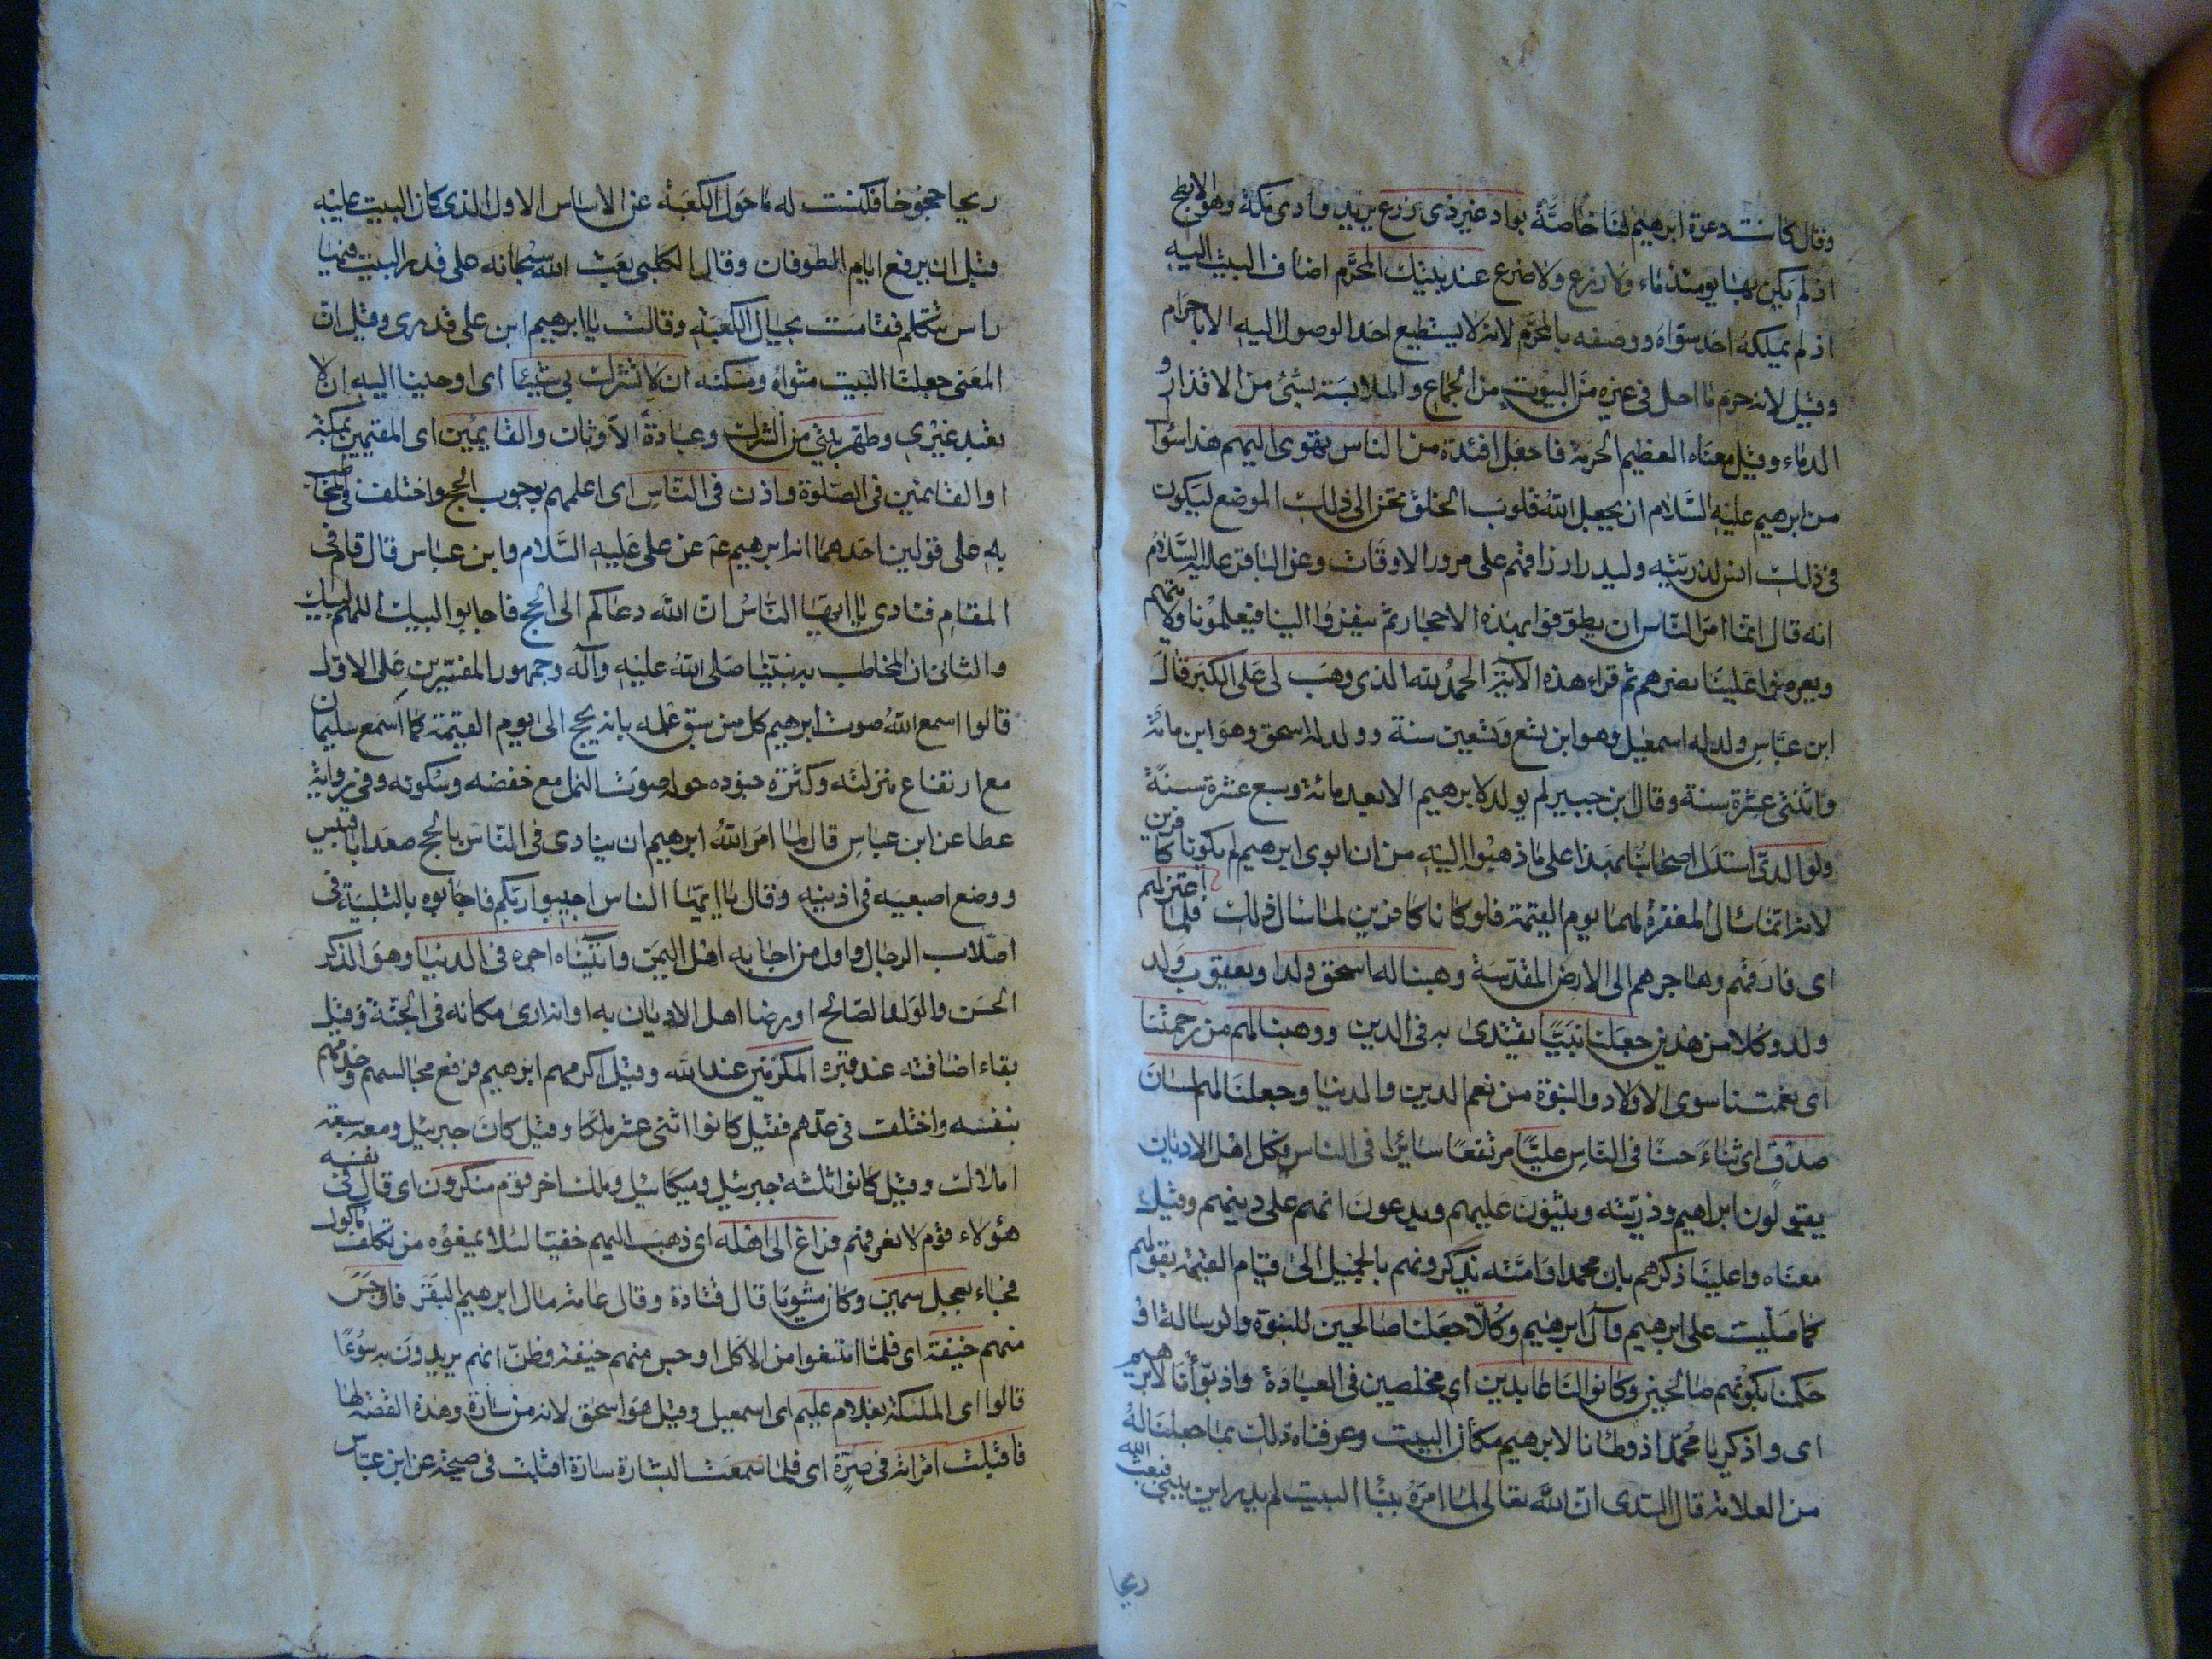 وقال كانت دعوة ابرهيم لنا خاصة بواد غير ذى زرع يريد وادى مكة وهو الابطح
اذ لم يكن بها يومئذ ماء ولا زرع ولا ضرع عند بيتك المحرم اضاف البيت اليه
اذ لم يملكه احد سواه ووصفه بالمحرم لانه لا يستطيع احد الوصول اليه الا باحرام
وقيل لانه حرم ما احل فى غيره من البيوت من الجماع والملابسة بشئ من الاقذار و
الدماء وقيل معناه العظيم الحرمة فاجعل افئدة من الناس تهوى اليهم هذا سؤال
من ابرهيم عليه السلام ان يجعل الله قلوب الخلق تحن الى ذلك الموضع ليكون
فى ذلك انس لذريته وليدر ارزاقهم على مرور الاوقات وعن الباقر عليه السلام
انه قال انما امر الناس ان يطوفوا بهذه الاحجار ثم ينفروا الينا فيعلمونا ولايتهم
ويعرضوا علينا نصرهم ثم قراء هذه الآية الحمد لله الذى وهب لى على الكبر قال
ابن عباس ولد له اسمعيل وهو ابن تسع وتسعين سنة وولد له اسحق وهو ابن مائة
واثنتى عشرة سنة وقال ابن جبير لم يولد لابرهيم الا بعد مائة وسبع عشرة سنة
ولوالدى استدل اصحابنا بهذا على ما ذهبوا اليه من ان ابوى ابرهيم لم يكونا كافرين
لانه انما سال المغفرة لهما يوم القيمة فلو كانا كافرين لما سال ذلك فلما اعتزلهم
اى فارقهم وهاجرهم الى الارض المقدسة وهبنا له اسحق ولدا ويعقوب ولد
ولد وكلا من هذين جعلنا نبيا يقتدى به فى الدين ووهبنا لهم من رحمتنا
اى نعمتنا سوى الاولاد والنبوة من نعم الدين والدنيا وجعلنا لهم لسان
صدق اى ثناء حسنا فى الناس عليا مرتفعا سائرا فى الناس فكل اهل الاديان
يتولون ابراهيم وذريته ويثنون عليهم ويدعون انهم على دينهم وقيل
معناه واعلينا ذكرهم بان محمدا وامته يذكرونهم بالجميل الى قيام القيمة بقولهم
كما صليت على ابرهيم وآل ابرهيم وكلا جعلنا صالحين للنبوة والرسالة او
حكمنا بكونهم صالحين وكانوا لنا عابدين اى مخلصين فى العبادة واذ بوأنا لابرهيم
اى واذكر يا محمد اذ وطانا لابرهيم مكان البيت وعرفناه ذلك بما جعلنا له
من العلامة قال السدى ان الله تعالى لما امره ببناء البيت لم يدر اين يبنى فبعث الله
ريحا
ريحا حجوخا فكنست له ما حول الكعبة عن الاساس الاول الذى كان البيت عليه
قبل ان يرفع ايام الطوفان وقال الكلبى بعث الله سبحانه على قدر البيت فيها
راس تتكلم فقامت بحيال الكعبة وقالت يا ابرهيم ابن على قدرى وقيل ان
المعنى جعلنا البيت مثواه ومسكنه ان لا تشرك بى شيئا اى اوحينا اليه ان لا
تعبد غيرى وطهر بيتى من الشرك وعبادة الاوثان والقائمين اى المقيمين بمكة
او القائمين فى الصلوة واذن فى الناس اى اعلمهم بوجوب الحج واختلف فى المخاطب
به على قولين احدهما انه ابرهيم عم عن على عليه السلام وابن عباس قال قام فى
المقام فنادى يا ايها الناس ان الله دعاكم الى الحج فاجابوا لبيك اللهم لبيك
والثانى ان المخاطب به نبينا صلى الله عليه وآله وجمهور المفسرين على الاول
قالوا اسمع الله صوت ابرهيم كل من سبق علمه بانه يحج الى يوم القيمة كما اسمع سليمان
مع ارتفاع منزلته وكثرة جنوده حوله صوت النمل مع خفضه وسكونه وفى رواية
عطا عن ابن عباس قال لما امر الله ابرهيم ان ينادى فى الناس بالحج صعد ابا قبيس
ووضع اصبعيه فى اذنيه وقال يا ايها الناس اجيبوا ربكم فاجابوه بالتلبية فى
اصلاب الرجال واول من اجابه اهل اليمن وآتيناه اجره فى الدنيا وهو الذكر
الحسن والولد الصالح او رضا اهل الاديان به او انه ارى مكانه فى الجنة وقيل
بقاء اضافته عند قبره المكرمين عند الله وقيل اكرمهم ابرهيم فرفع مجالسهم وخدمهم
بنفسه واختلف فى عدهم فقيل كانوا اثنى عشر ملكا وقيل كان جبرئيل ومعه سبعة
املاك وقيل كانوا ثلثة جبرئيل وميكائيل وملك اخر قوم منكرون اى قال فى نفسه
هؤلاء قوم لا نعرفهم فراغ الى اهله اى ذهب اليهم خفيا لئلا يمنعوه من تكلف ماكول
فجاء بعجل سمين وكان مشويا قال قتادة وقال عامة مال ابرهيم البقر فاوجس
منهم خيفة اى فلما امتنعوا من الاكل اوجس منهم خيفة وظن انهم يريدون به سوءا
قالوا اى الملئكة بغلام عليم اى اسمعيل وقيل هو اسحق لانه من سارة وهذه القصة لها
فاقبلت امراته فى صرة اى فلما سمعت البشارة سارة اقبلت فى صيحة عن ابن عباس